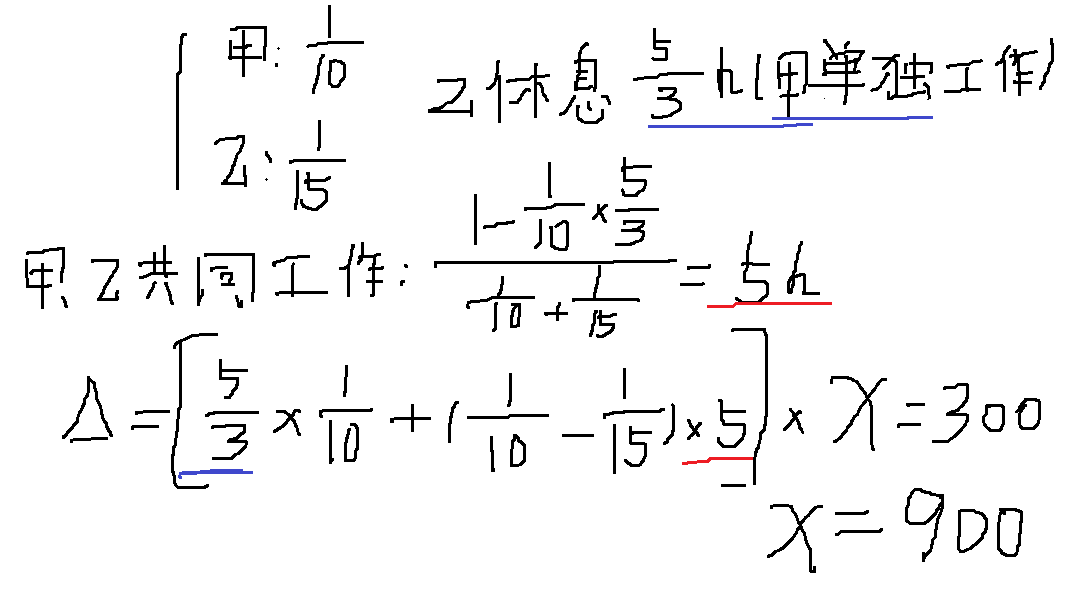 甲: 1/10
乙: 1/15
乙休息 5/3 h (甲单独工作)
甲、乙共同工作: (1 - 1/10 × 5/3) / (1/10 + 1/15) = 5h
Δ = [5/3 × 1/10 + (1/10 - 1/15) × 5] × x = 300
x = 900